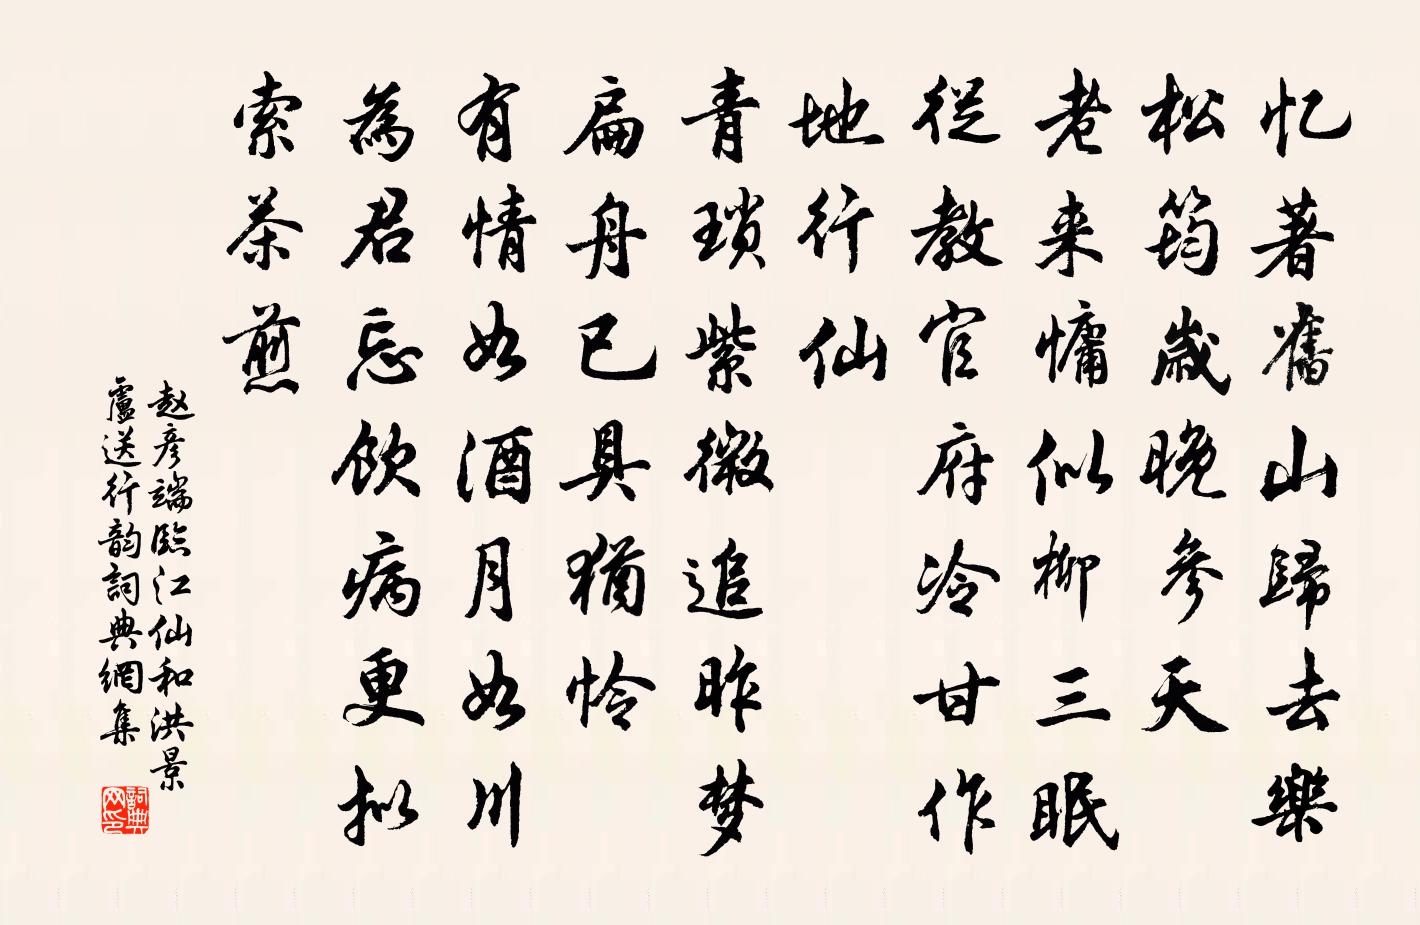 忆著舊山歸去樂
松筠歲晚參天
老来慵似柳三眠
従教官府冷甘作
地行仙
青瑣紫微追昨梦
扁舟已具猶怜
有情如酒月如川
為君忘飲病更拟
索茶煎
赵彦端臨江仙和洪景
盧送行韵詞典網集
詞典网印